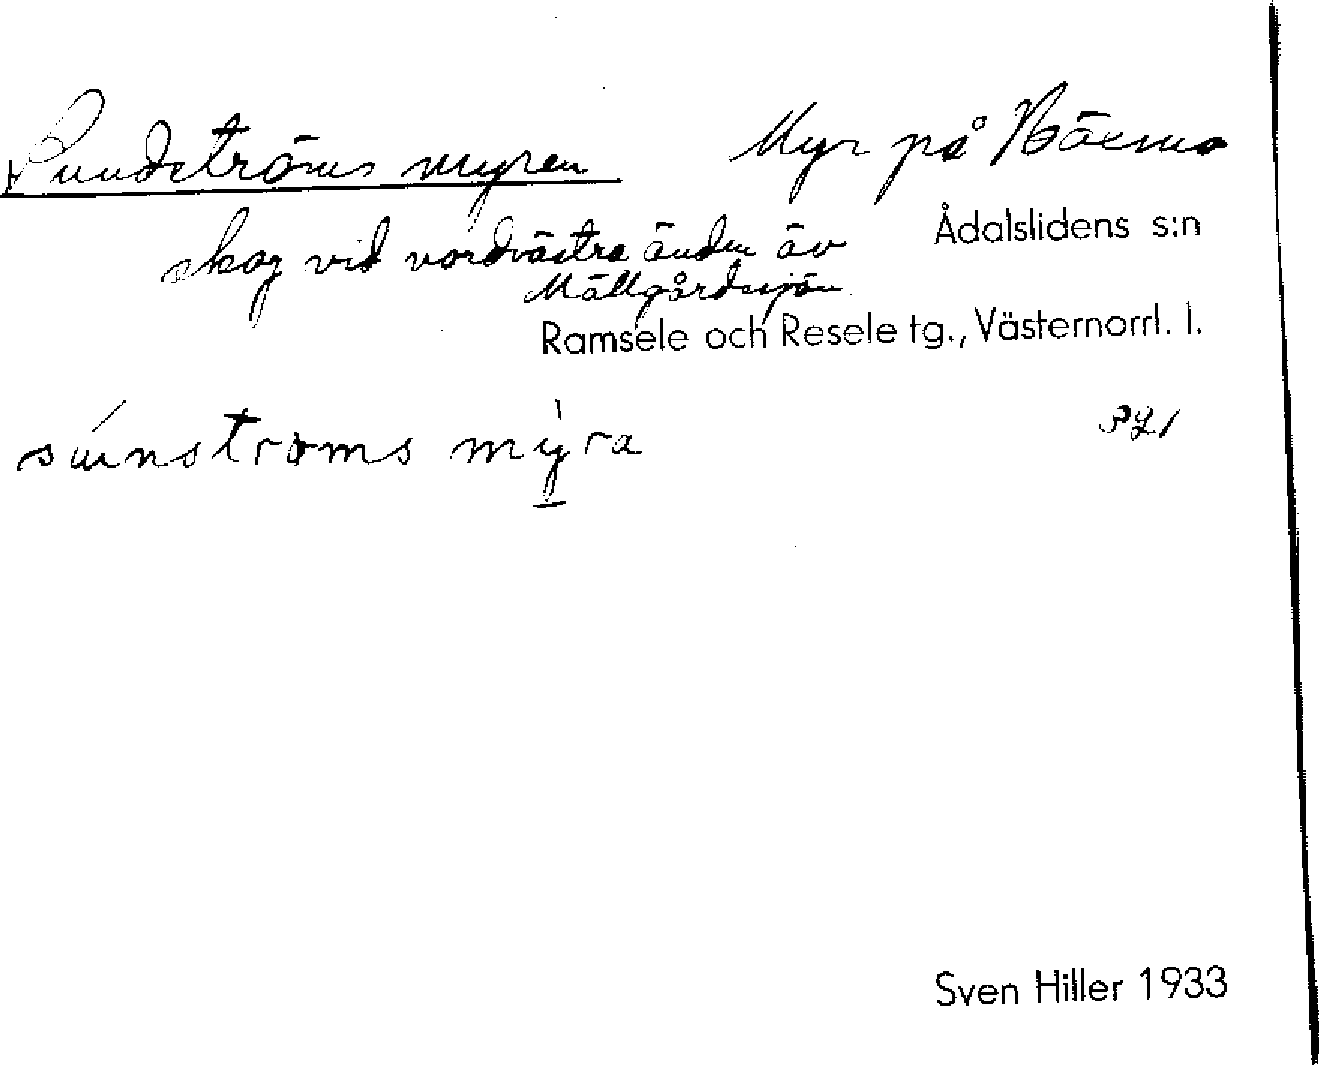 Sundströms myren Myr på Näsma
skog vid nordvästra änden äv
Mällgårdssjön
Ådalslidens s:n
Ramsele och Resele tg., Västernorrl. l.
sùnstroms mỳra
Sven Hiller 1933